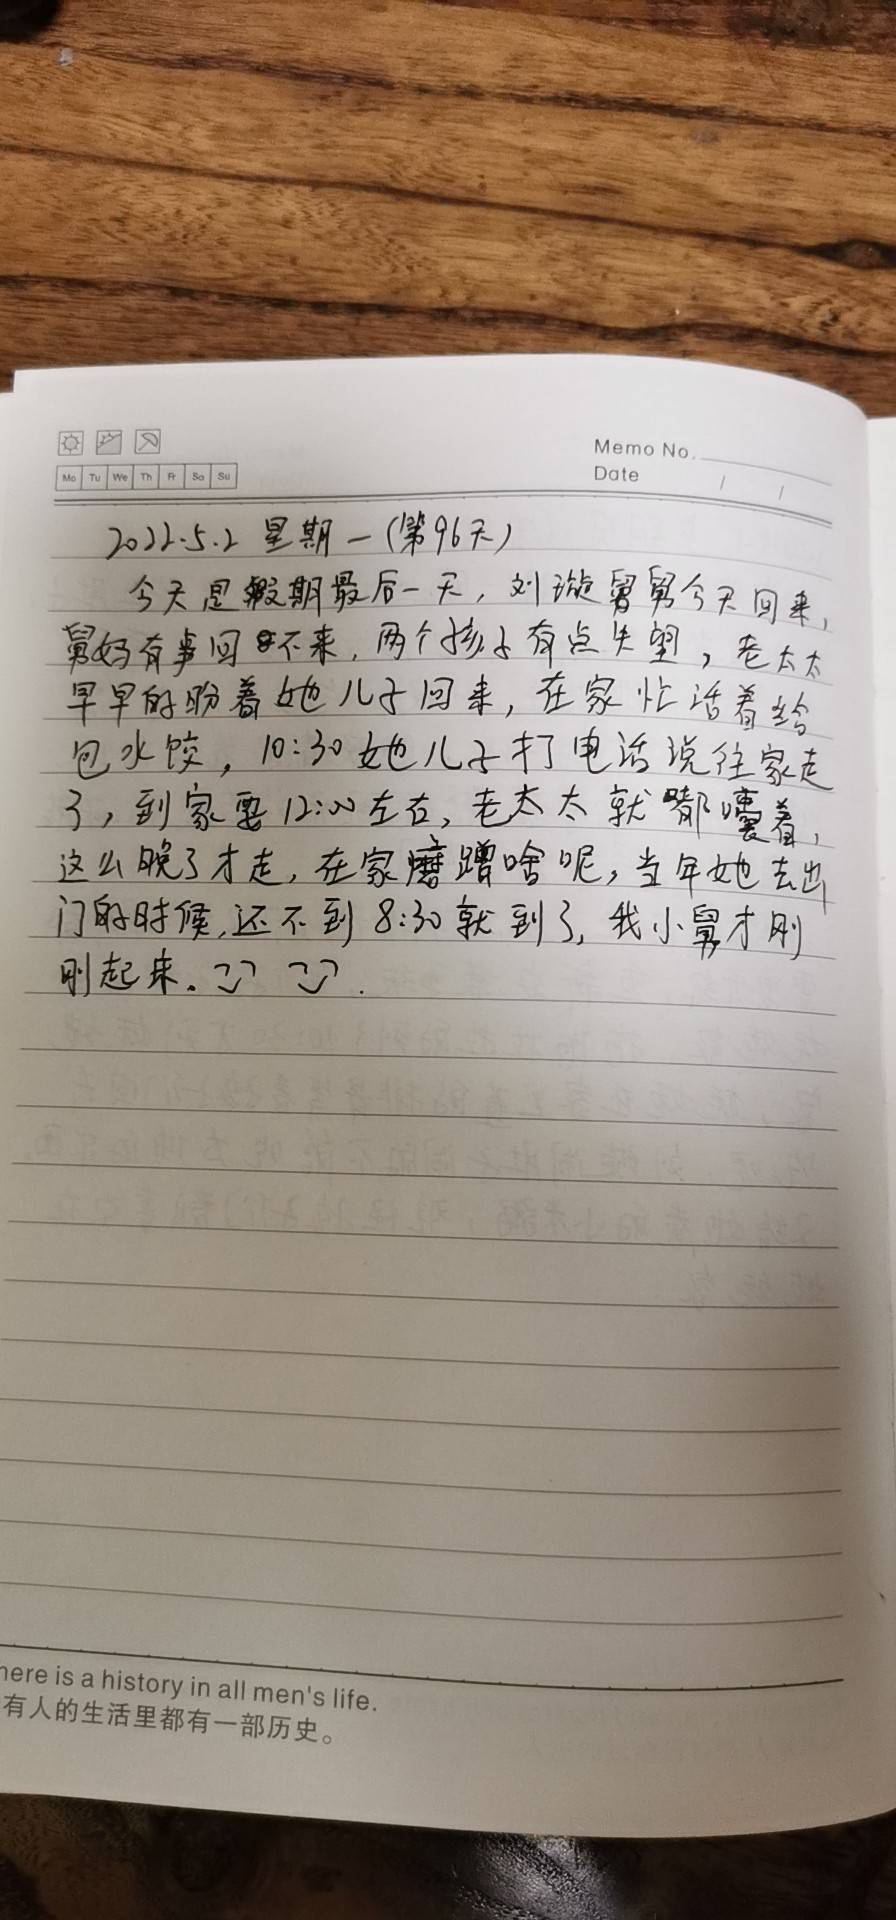 Memo No.
Mo Tu We Th Fr Sa Su
Date / /
2022.5.2 星期一(第96天)
今天是假期最后一天，刘璇舅舅今天回来，
舅妈有事回不来，两个孩子有点失望，老太太
早早的盼着她儿子回来，在家忙活着给
包水饺，10:30她儿子打电话说往家走
了，到家要12:00左右，老太太就嘟囔着，
这么晚了才走，在家磨蹭啥呢，当年她去出
门的时候，还不到8:30就到了，我小舅才刚
刚起来。
here is a history in all men's life.
有人的生活里都有一部历史。